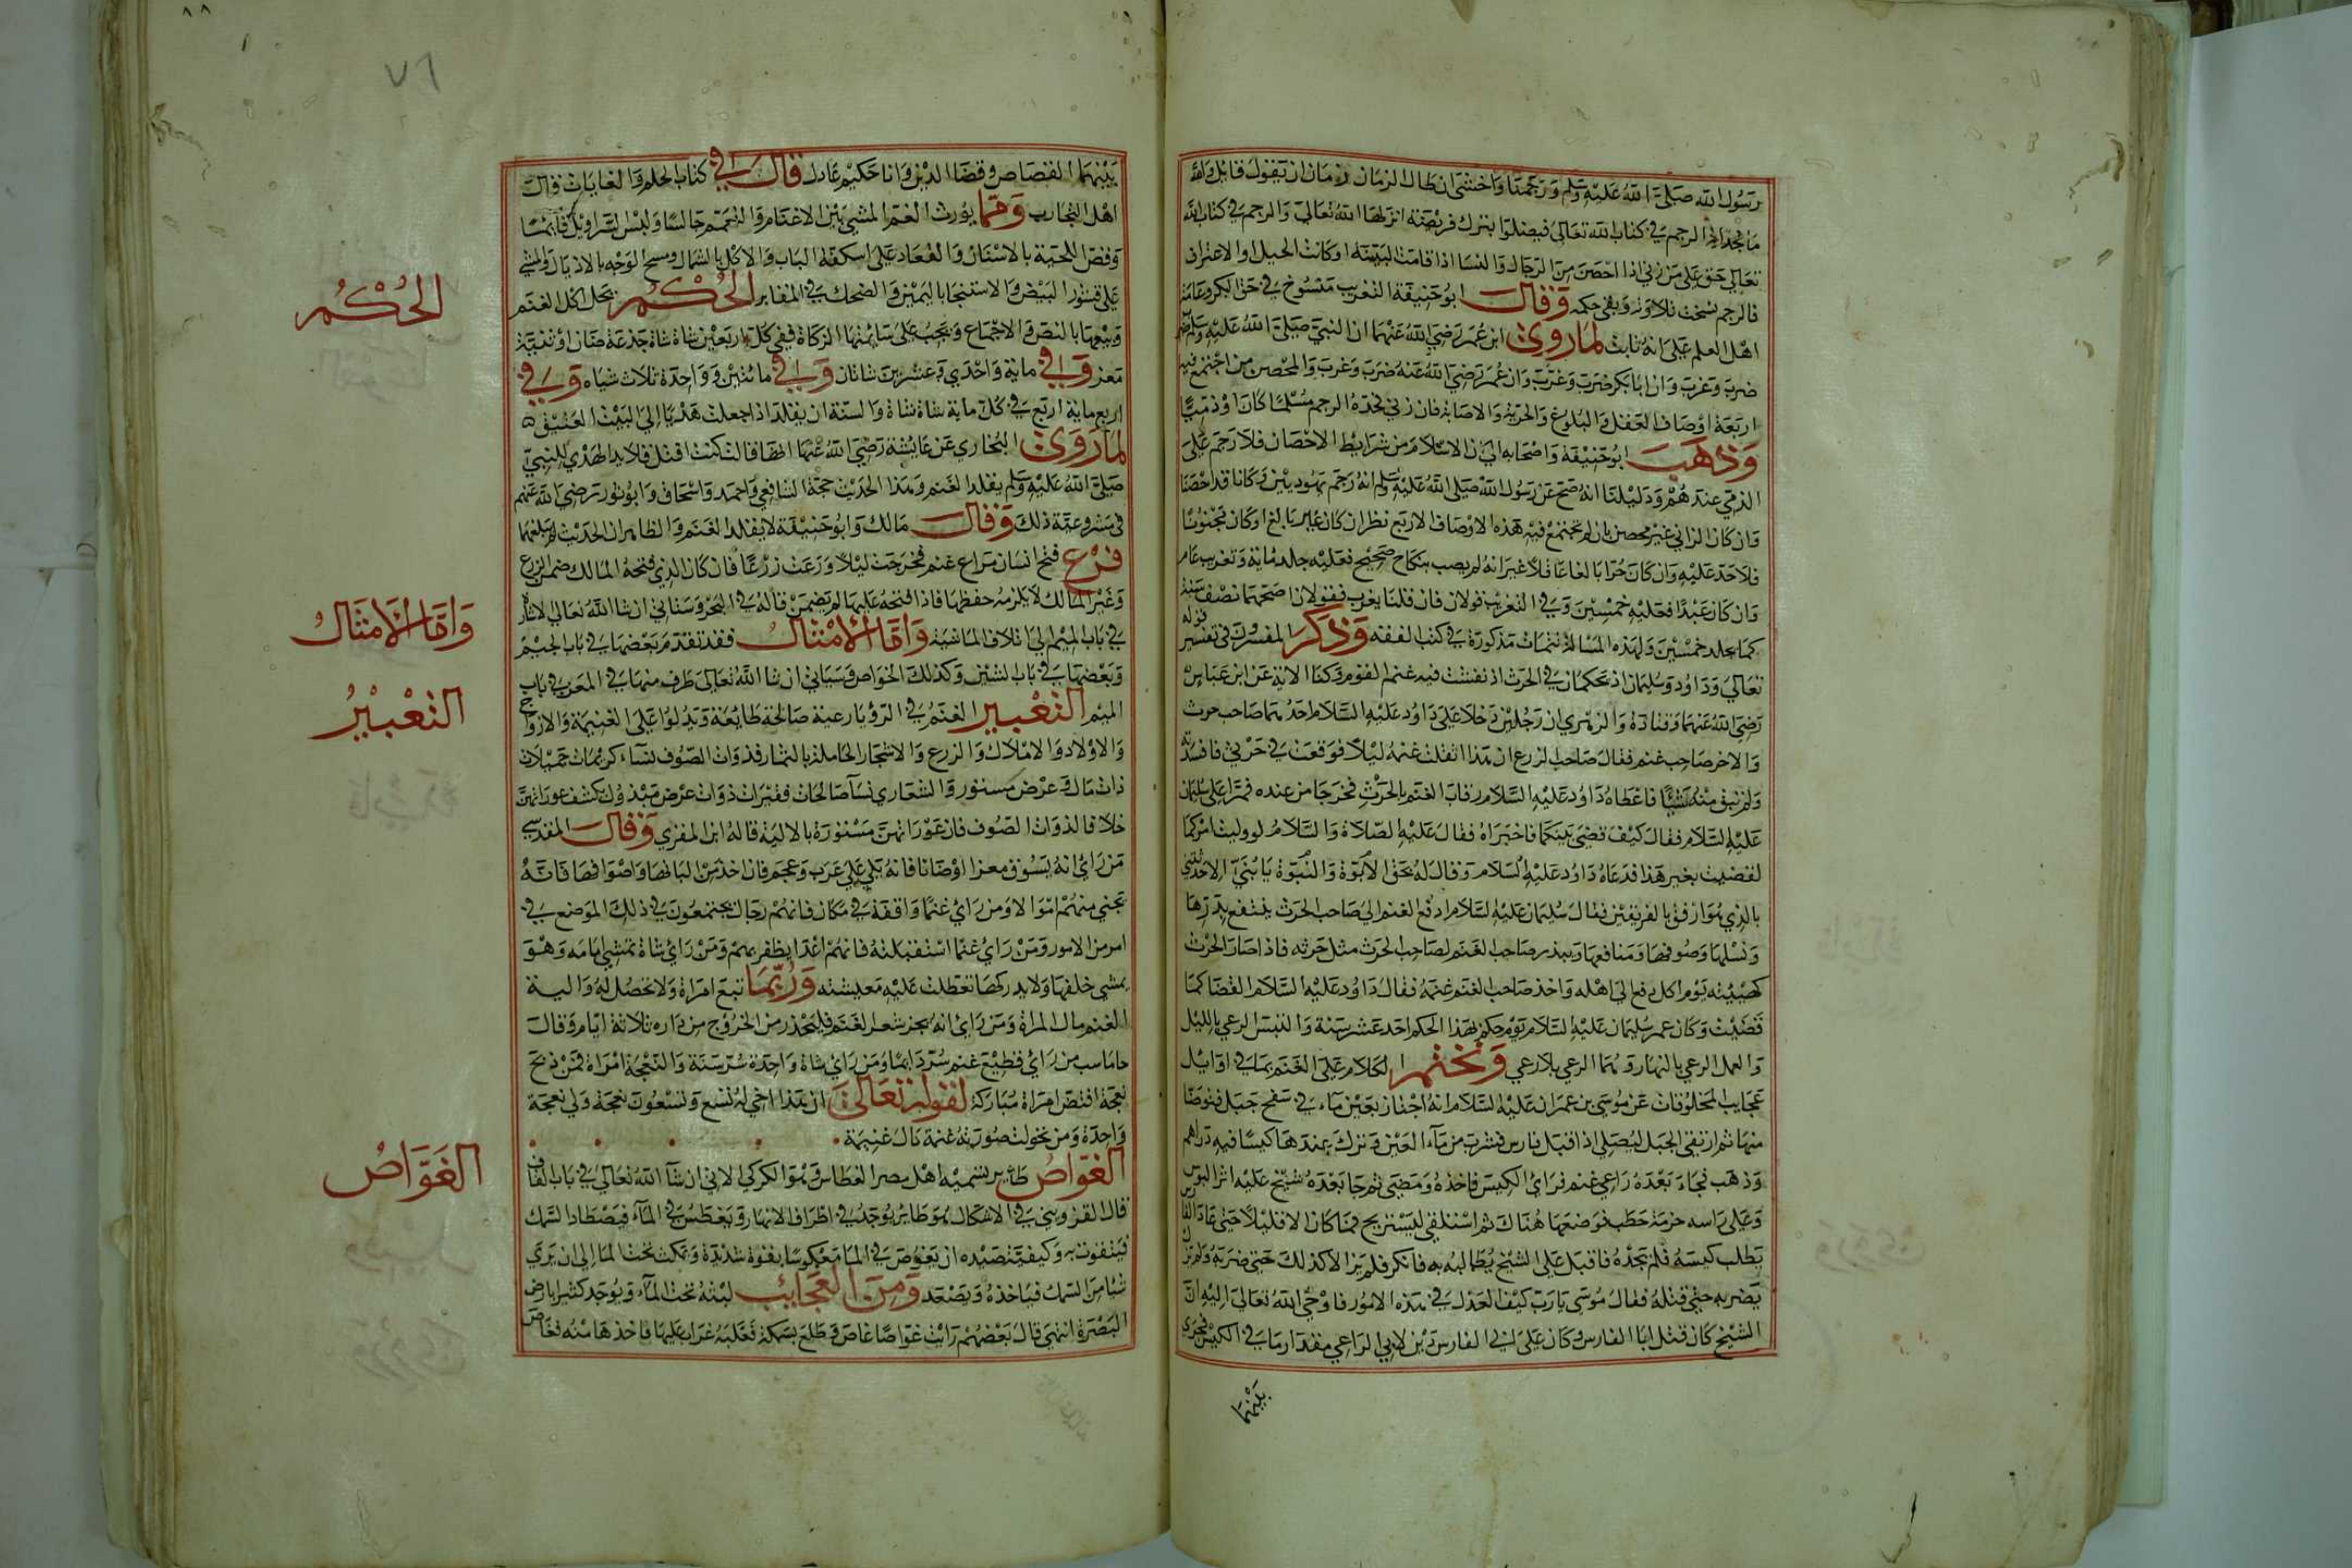 رسول الله صلى الله عليه وسلم ورجمنا واخشى ان طال الزمان زمان ان يقول قايل والله
ما نجد اية الرجم في كتاب الله تعالى فيضلوا بترك فريضة انزلها الله تعالى والرجم في كتاب الله
تعالى حق على من زنى اذا احصن من الرجال والنسا اذا قامت البينة او كانت الحبل او الاعتراف
فالرجم نسخت تلاوته وبقي حكمه وقال ابو حنيفة التغريب منسوخ في حق البكر وعامة
اهل العلم على انه ثابت لما روى ابن عمر رضي الله عنهما ان النبي صلى الله عليه وسلم
ضرب وغرب وان ابا بكر ضرب وغرب وان عمر رضي الله عنه ضرب وغرب والمحصن من اجتمع فيه
اربعة اوصاف العقل والبلوغ والحرية والاصابة فان زنى فحده الرجم مسلما كان او ذميا
وذهب ابو حنيفة واصحابه الى ان الاسلام من شرايط الاحصان فلا رجم على
الذمي عندهم ودليلنا انه صح عن رسول الله صلى الله عليه وسلم انه رجم يهوديين وكانا قد احصنا
وان كان الزاني غير محصن بان لم تجتمع فيه هذه الاوصاف الاربع نظر ان كان غير بالغ او كان مجنونا
فلا حد عليه وان كان حرا بالغا عاقلا غير انه لم يصب بنكاح صحيح فعليه جلد ماية وتغريب عام
وان كان عبدا فعليه خمسين وفي التغريب قولان فان قلنا يغرب فقولان اصحهما نصف سنة
كما يجلد خمسين ولهذه المسالة تتمات مذكورة في كتب الفقه وذكر المفسرون في تفسير قوله
تعالى وداود وسليمان اذ يحكمان في الحرث اذ نفشت فيه غنم القوم وكنا الاية عن ابن عباس
رضي الله عنهما وقتادة والزهري ان رجلين دخلا على داود عليه السلام احدهما صاحب حرث
والاخر صاحب غنم فقال صاحب الزرع ان هذا انفلتت غنمه ليلا فوقعت في حرثي فافسدته
ولم تبق منه شيئا فاعطاه داود عليه السلام رقاب الغنم بالحرث فخرجا من عنده فمرا على سليمان
عليه السلام فقال كيف قضى بينكما فاخبراه فقال عليه الصلاة والسلام لو وليت امركما
لقضيت بغير هذا فدعاه داود عليه السلام وقال له بحق الابوة والنبوة يا بني الا حدثتني
بالذي هو ارفق بالفريقين فقال سليمان عليه السلام ادفع الغنم الى صاحب الحرث ينتفع بدرها
ونسلها وصوفها ومنافعها ويبذر صاحب الغنم لصاحب الحرث مثل حرثه فاذا صار الحرث
كهيئته يوم اكل دفع الى اهله واخذ صاحب الغنم غنمه فقال داود عليه السلام القضا كما
قضيت وكان عمر سليمان عليه السلام يوم حكم بهذا الحكم احد عشر سنة والنفش الرعي بالليل
والهمل الرعي بالنهار وهما الرعي بلا رعي ونختم الكلام على الغنم بما في اوايل
عجايب المخلوقات عن موسى بن عمران عليه السلام انه اجتاز بعين ماء في سفح جبل فتوضا
منها ثم ارتقى الجبل ليصلي اذ اقبل فارس فشرب من ماء العين وترك عندها كيسا فيه دراهم
وذهب فجاء بعده راعي غنم فراى الكيس فاخذه ومضى ثم جا بعده شيخ عليه اثر البوس
وعلى راسه حزمة حطب فوضعها هناك ثم استلقى ليستريح فما كان الا قليلا حتى عاد الفارس
يطلب كيسه فلم يجده فاقبل على الشيخ يطالبه به فانكر فلم يزالا كذلك حتى ضربه ولم يزل
يضربه حتى قتله فقال موسى يا رب كيف العدل في هذه الامور فاوحى الله تعالى اليه ان
الشيخ كان قتل ابا الفارس وكان على ابي الفارس دين لابي الراعي مقدار ما في الكيس فجرى
بينهما
٧٦
بينهما القصاص وقضا الدين وانا حكيم عادل قال في كتاب الحلم والغايات قال
اهل التجارب ومما يورث الغم المشي بين الاغنام والتعمم جالسا ولبس السراويل قايما
وقص اللحية بالاسنان والقعاد على اسكفة الباب والاكل بالشمال ومسح الوجه بالاذيال والمشي
على قشور البيض والاستنجا باليمين والضحك في المقابر الحكم يحل اكل الغنم
وبيعها بالنص والاجماع ويجب على سائمتها الزكاة ففي كل اربعين شاة شاة جذعة ضان او ثنية
معز وفي ماية واحدى وعشرين شاتان وفي مائتين وواحدة ثلاث شياه وفي
اربع ماية اربع في كل ماية شاة شاة والسنة ان يقلد اذا جعلت هديا الى البيت العتيق
لما روى البخاري عن عايشة رضي الله عنها انها قالت كنت افتل قلايد الهدي للنبي
صلى الله عليه وسلم يقلد الغنم وهذا الحديث حجة الشافعي واحمد واسحاق وابو ثور رضي الله عنهم
في مشروعية ذلك وقال مالك وابو حنيفة لا يقلد الغنم والظاهر ان الحديث لم يبلغهما
فرع فتح انسان مراع غنم فخرجت ليلا ورعت زرعا فان كان الذي فتحه المالك ضمن الزرع
وغير المالك لا يلزمه حفظها فاذا فتحه عليها لم يضمن قاله في البحر وسياتي ان شا الله تعالى
في باب الميم الى اتلاف الماشية واما الامثال فقد تقدم بعضها في باب الجيم
وبعضها في باب الشين وكذلك الخواص وسياتي ان شا الله تعالى طرف منها في المعز في باب
الميم التعبير الغنم في الرؤيا رعية صالحة طايعة ويدلوا على الغنيمة والازواج
والاولاد والاملاك والزرع والاشجار الحاملة بالثمار فذوات الصوف نساء كريمات جميلات
ذات مال وعرض مستور والشعاري نسا صالحات فقيرات ذوات عرض مبذول بكشف عوراتهن
خلافا لذوات الصوف فان عوراتهن مستورة بالالية قاله ابن المقري وقال المقدسي
من راى انه يسوق معزا او ضانا فانه يلي على عرب وعجم فان اخذ من البانها واصوافها فانه
يجني منهم اموالا ومن راى غنما واقفة في مكان فانهم رجال يجتمعون في ذلك الموضع في
امر من الامور ومن راى غنما استقبلته فانهم اعدا يظفر بهم ومن راى شاة تمشي امامه وهو
يمشي خلفها ولا يدركها تعطلت عليه معيشته وربما تبع امراة ولا تحصل له والية
الغنم مال المراة ومن راى انه يجز شعر الغنم فليحذر من الخروج من داره ثلاثة ايام وقال
جاماسب من راى قطيع غنم سر دايما ومن راى شاة واحدة سر سنة والنعجة امراة فمن ذبح
نعجة افتض امراة مباركة لقوله تعالى ان هذا اخي له تسع وتسعون نعجة ولي نعجة
واحدة ومن تحولت صورته غنمة نال غنيمة
الغواص طاير يسميه اهل مصر الغطاس وهو الكركي الاتي ان شا الله تعالى في باب القاف
قال القزويني في الاشكال هو طاير يوجد في اطراف الانهار ويغطس في الماء فيصطاد السمك
فيتقوت به وكيفية صيده ان يغوص في الما معكوسا بقوة شديدة ويمكث تحت الما الى ان يرى
شيا من السمك فياخذه ويصعد ومن العجايب لبثه تحت الماء ويوجد كثيرا بارض
البصرة انتهى قال بعضهم رايت غواصا غاص وطلع بسمكة فغلبه غراب عليها فاخذها منه فغاص
الحكم
واما الامثال
التعبير
الغواص